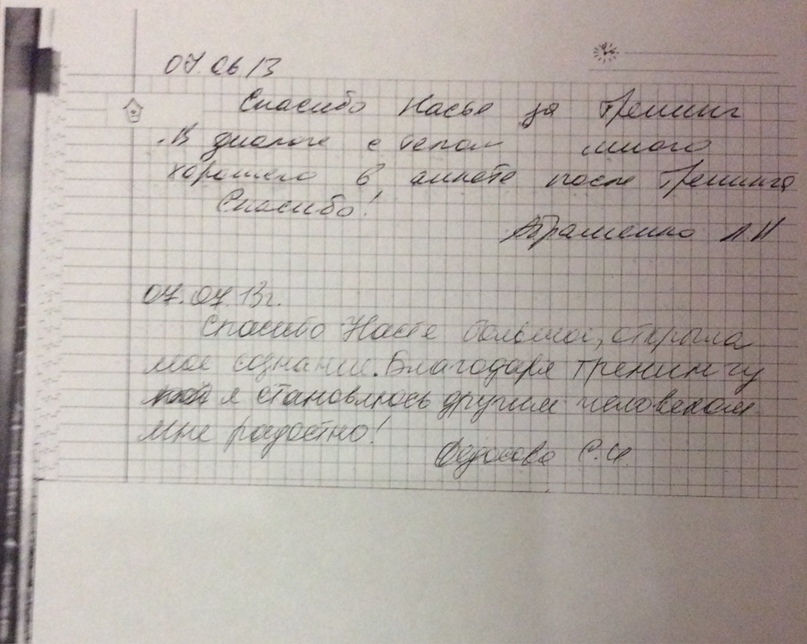 07.06 13
Спасибо Насте за Тренинг
"В диалоге с телом" много
хорошего в анкете после Тренинга
Спасибо!
Абраменко Л И
07.07.13г.
Спасибо Насте большое, открыла
мое сознание. Благодаря тренингу
я становлюсь другим человеком
мне радостно!
С.И.